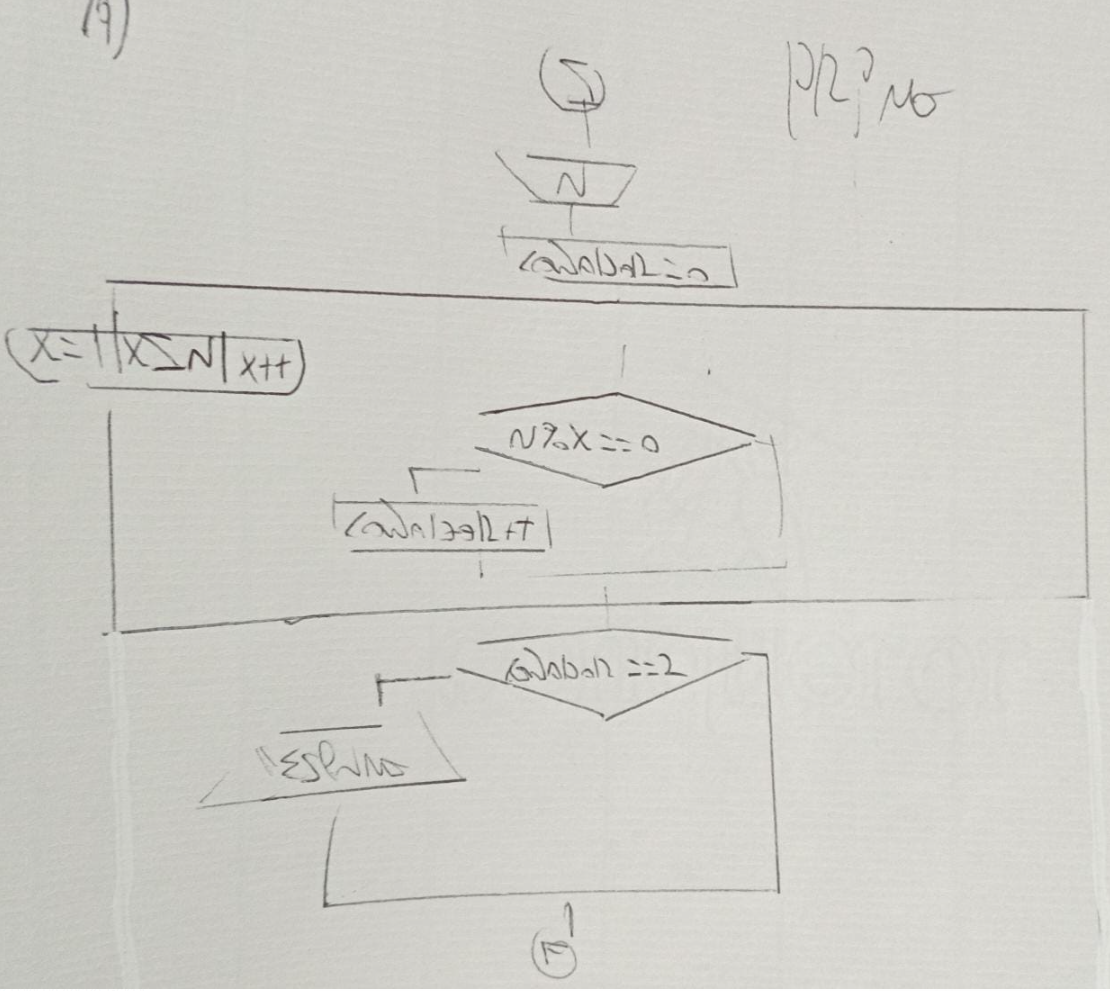 I
N
contador=0
X=1 | X≤N | X++
N%X==0
contador++
contador==2
"ES PRIMO
F